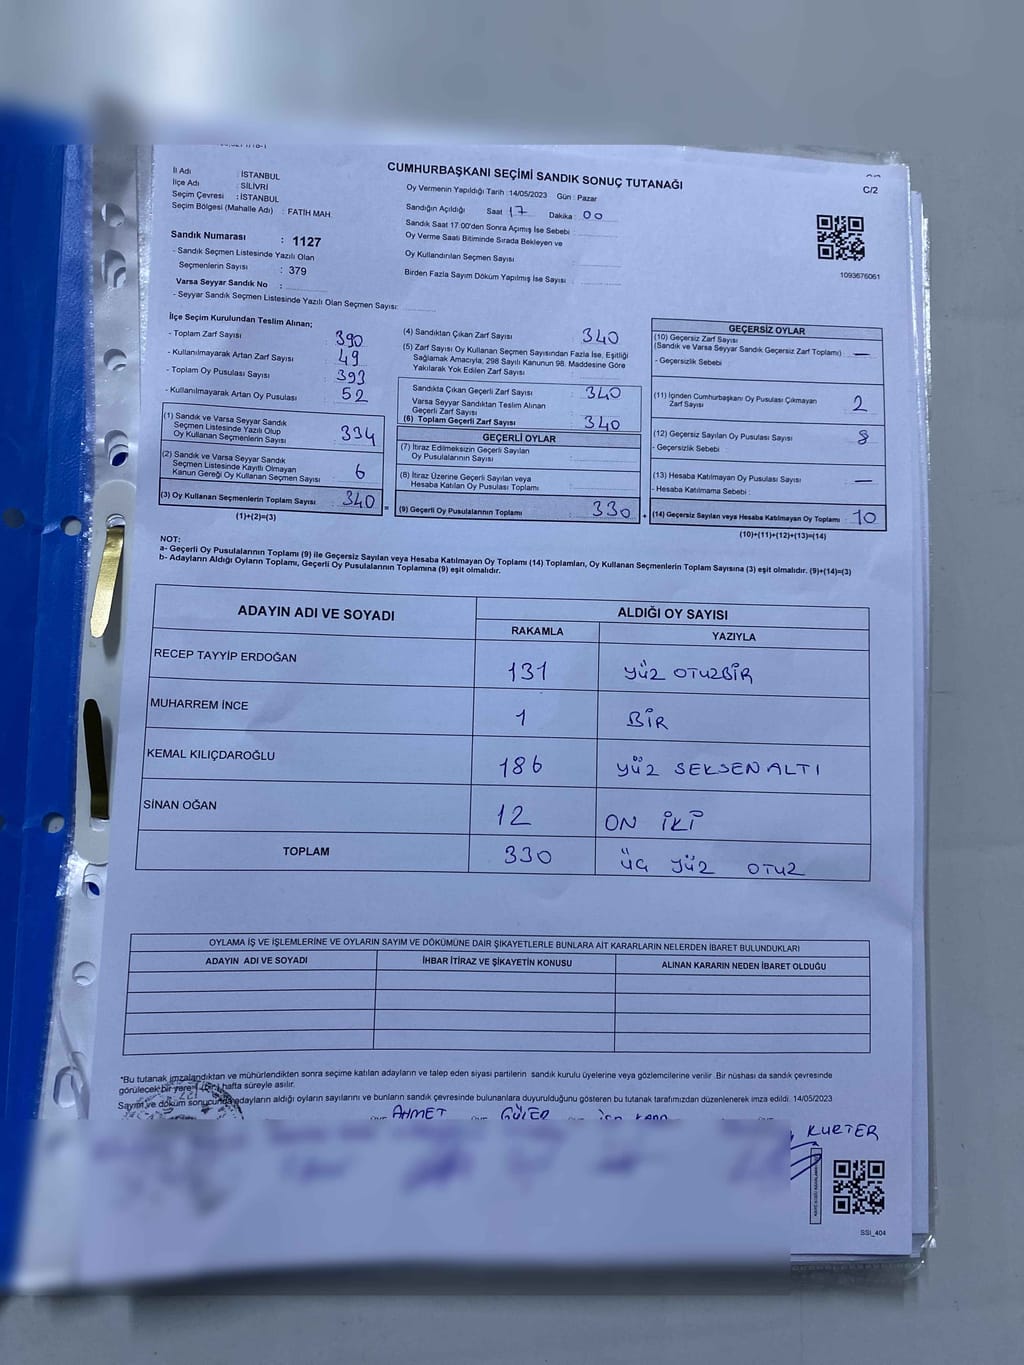 CUMHURBAŞKANI SEÇİMİ SANDIK SONUÇ TUTANAĞI
C/2
İl Adı : İSTANBUL
İlçe Adı : SİLİVRİ
Seçim Çevresi : İSTANBUL
Seçim Bölgesi (Mahalle Adı) : FATİH MAH.
Sandık Numarası : 1127
- Sandık Seçmen Listesinde Yazılı Olan
Seçmenlerin Sayısı : 379
Varsa Seyyar Sandık No :
- Seyyar Sandık Seçmen Listesinde Yazılı Olan Seçmen Sayısı:
Oy Vermenin Yapıldığı Tarih : 14/05/2023 Gün : Pazar
Sandığın Açıldığı Saat 17 Dakika : 00
Sandık Saat 17:00'den Sonra Açımış İse Sebebi :
Oy Verme Saati Bitiminde Sırada Bekleyen ve
Oy Kullandırılan Seçmen Sayısı :
Birden Fazla Sayım Döküm Yapılmış İse Sayısı :
1093676061
İlçe Seçim Kurulundan Teslim Alınan;
- Toplam Zarf Sayısı : 390
- Kullanılmayarak Artan Zarf Sayısı : 49
- Toplam Oy Pusulası Sayısı : 393
- Kullanılmayarak Artan Oy Pusulası : 52
(1) Sandık ve Varsa Seyyar Sandık
Seçmen Listesinde Yazılı Olup
Oy Kullanan Seçmenlerin Sayısı : 334
(2) Sandık ve Varsa Seyyar Sandık
Seçmen Listesinde Kayıtlı Olmayan
Kanun Gereği Oy Kullanan Seçmen Sayısı : 6
(3) Oy Kullanan Seçmenlerin Toplam Sayısı : 340
(1)+(2)=(3)
(4) Sandıktan Çıkan Zarf Sayısı : 340
(5) Zarf Sayısı Oy Kullanan Seçmen Sayısından Fazla İse, Eşitliği
Sağlamak Amacıyla, 298 Sayılı Kanunun 98. Maddesine Göre
Yakılarak Yok Edilen Zarf Sayısı :
Sandıkta Çıkan Geçerli Zarf Sayısı : 340
Varsa Seyyar Sandıktan Teslim Alınan
Geçerli Zarf Sayısı :
(6) Toplam Geçerli Zarf Sayısı : 340
GEÇERLİ OYLAR
(7) İtiraz Edilmeksizin Geçerli Sayılan
Oy Pusulalarının Sayısı :
(8) İtiraz Üzerine Geçerli Sayılan veya
Hesaba Katılan Oy Pusulası Toplamı :
= (9) Geçerli Oy Pusulalarının Toplamı : 330 +
GEÇERSİZ OYLAR
(10) Geçersiz Zarf Sayısı
(Sandık ve Varsa Seyyar Sandık Geçersiz Zarf Toplamı) : —
- Geçersizlik Sebebi :
(11) İçinden Cumhurbaşkanı Oy Pusulası Çıkmayan
Zarf Sayısı : 2
(12) Geçersiz Sayılan Oy Pusulası Sayısı : 8
- Geçersizlik Sebebi :
(13) Hesaba Katılmayan Oy Pusulası Sayısı : —
- Hesaba Katılmama Sebebi :
(14) Geçersiz Sayılan veya Hesaba Katılmayan Oy Toplamı : 10
(10)+(11)+(12)+(13)=(14)
NOT:
a- Geçerli Oy Pusulalarının Toplamı (9) ile Geçersiz Sayılan veya Hesaba Katılmayan Oy Toplamı (14) Toplamları, Oy Kullanan Seçmenlerin Toplam Sayısına (3) eşit olmalıdır. (9)+(14)=(3)
b- Adayların Aldığı Oyların Toplamı, Geçerli Oy Pusulalarının Toplamına (9) eşit olmalıdır.
ADAYIN ADI VE SOYADI ALDIĞI OY SAYISI
RAKAMLA YAZIYLA
RECEP TAYYİP ERDOĞAN 131 YÜZ OTUZBİR
MUHARREM İNCE 1 BİR
KEMAL KILIÇDAROĞLU 186 YÜZ SEKSEN ALTI
SİNAN OĞAN 12 ON İKİ
TOPLAM 330 ÜÇ YÜZ OTUZ
OYLAMA İŞ VE İŞLEMLERİNE VE OYLARIN SAYIM VE DÖKÜMÜNE DAİR ŞİKAYETLERLE BUNLARA AİT KARARLARIN NELERDEN İBARET BULUNDUKLARI
ADAYIN ADI VE SOYADI İHBAR İTİRAZ VE ŞİKAYETİN KONUSU ALINAN KARARIN NEDEN İBARET OLDUĞU
*Bu tutanak imzalandıktan ve mühürlendikten sonra seçime katılan adayların ve talep eden siyasi partilerin sandık kurulu üyelerine veya gözlemcilerine verilir .Bir nüshası da sandık çevresinde
görülecek bir yere 1 (Bir) hafta süreyle asılır.
Sayım ve döküm sonucunda adayların aldığı oyların sayılarını ve bunların sandık çevresinde bulunanlara duyurulduğunu gösteren bu tutanak tarafımızdan düzenlenerek imza edildi. 14/05/2023
AHMET GÜLER
KURTER
SSİ_404